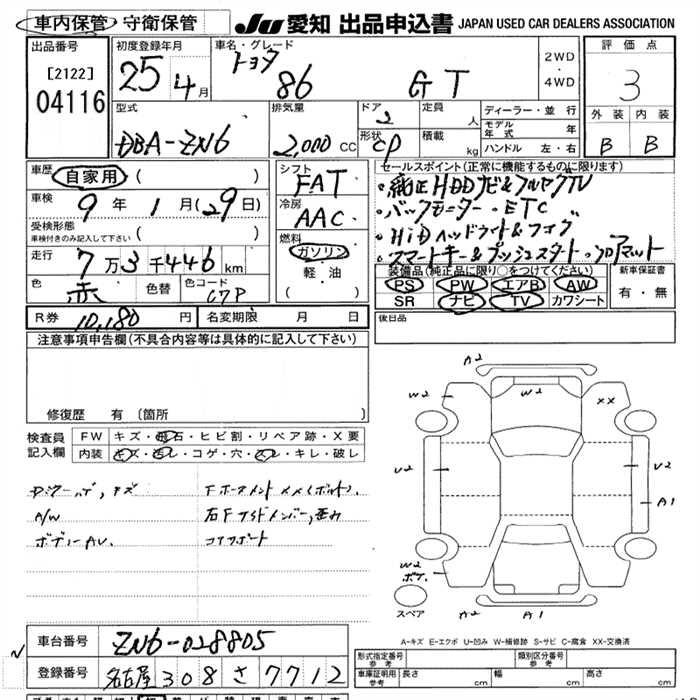 車内保管・守衛保管 JU 愛知 出品申込書 JAPAN USED CAR DEALERS ASSOCIATION
出品番号 初度登録年月 車名・グレード 2WD・4WD 評価点
[2122] 25年4月 トヨタ 86 GT 3
04116 型式 排気量 ドア 定員 ディーラー・並行 外装 内装
DBA-ZN6 2,000 CC 2 人 モデル年式 年 B B
形状 CP 積載 kg ハンドル 左・右
車歴 自家用 ( ) シフト FAT セールスポイント(正常に機能するものに限ります)
車検 9年1月(29日) 冷房 AAC ・純正HDDナビ&フルセグTV
受検形態 車検付きのみ記入して下さい ( ) 燃料 ・バックモニター・ETC
走行 7万3千446km ガソリン ・HiDヘッドライト&フォグ
色 赤 色替 色コード C7P 軽・油 ・スマートキー&プッシュスタート・フロアマット
装備品(純正品に限り○をつけてください) 新車保証書
PS PW エアB AW 有・無
SR ナビ TV カワシート
R券 10,180円 名変期限 月 日 後日品
注意事項申告欄(不具合内容等は具体的に記入して下さい)
修復歴 有 〔箇所 〕
検査員記入欄 FW キズ・飛石・ヒビ割・リペア跡・X要
内装 キズ・汚レ・コゲ・穴・スレ・キレ・破レ
A2
W2 W2 XX
U2 U2
A1
W2
ボデ
A2 A1
スペア
A/W
ボディーAU.
コアサポート
A-キズ E-エクボ U-凹み W-補修跡 S-サビ C-腐食 XX-交換済
車台番号 ZN6-028805
登録番号 名古屋 308 さ 7712
型式指定番号 参考 類別区分番号 参考
車庫証明用 参考 長さ cm 幅 cm 高さ cm